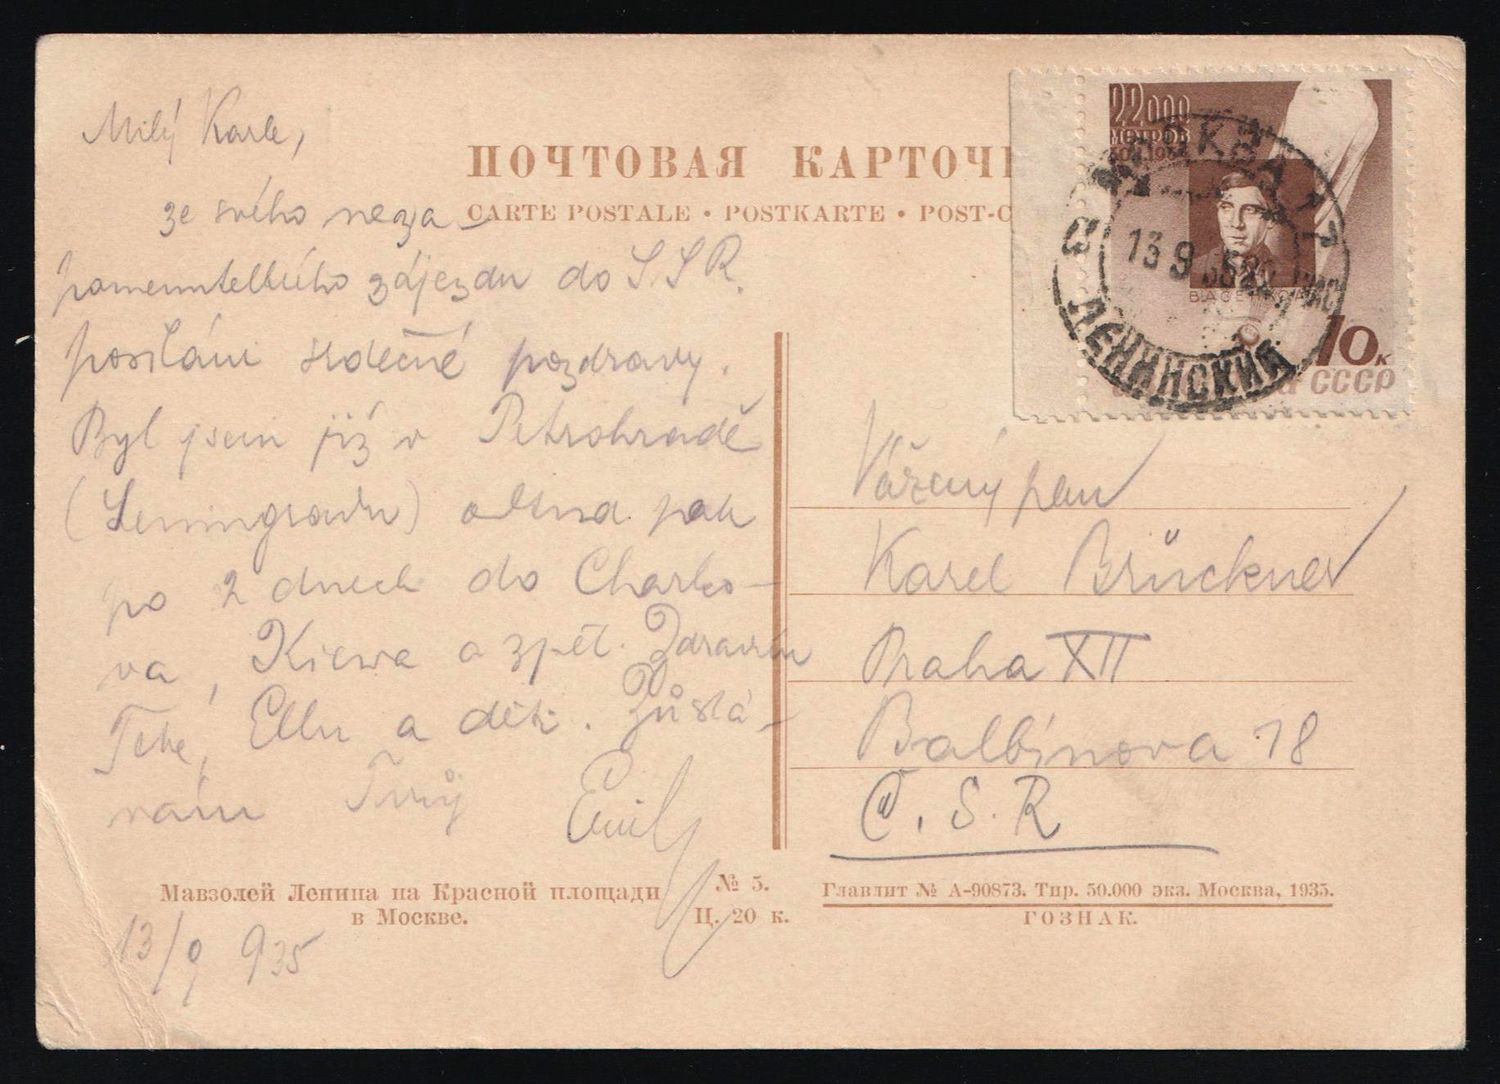 Milý Karle,
ze svého neza-
pomenutelného zájezdu do S.S.R.
posílám srdečné pozdravy.
Byl jsem již v Petrohradě
(Leningradu) odtud pak
po 2 dnech do Charko-
va, Kiewa a zpět. Zdravím
Tebe, Ellu a děti. Zůstá-
vám Tvůj Emil
13/9 935
ПОЧТОВАЯ КАРТОЧ
CARTE POSTALE • POSTKARTE • POST-C
22000
МЕТРОВ
10 к
СССР
МОСКВА
13 9 35
ЛЕНИНСКИЙ
Vážený pan
Karel Brückner
Praha XII
Balbínova 18
Č.S.R
Мавзолей Ленина на Красной площади
в Москве.
№ 5.
Ц. 20 к.
Главлит № А-90873. Тир. 50.000 экз. Москва, 1935.
ГОЗНАК.